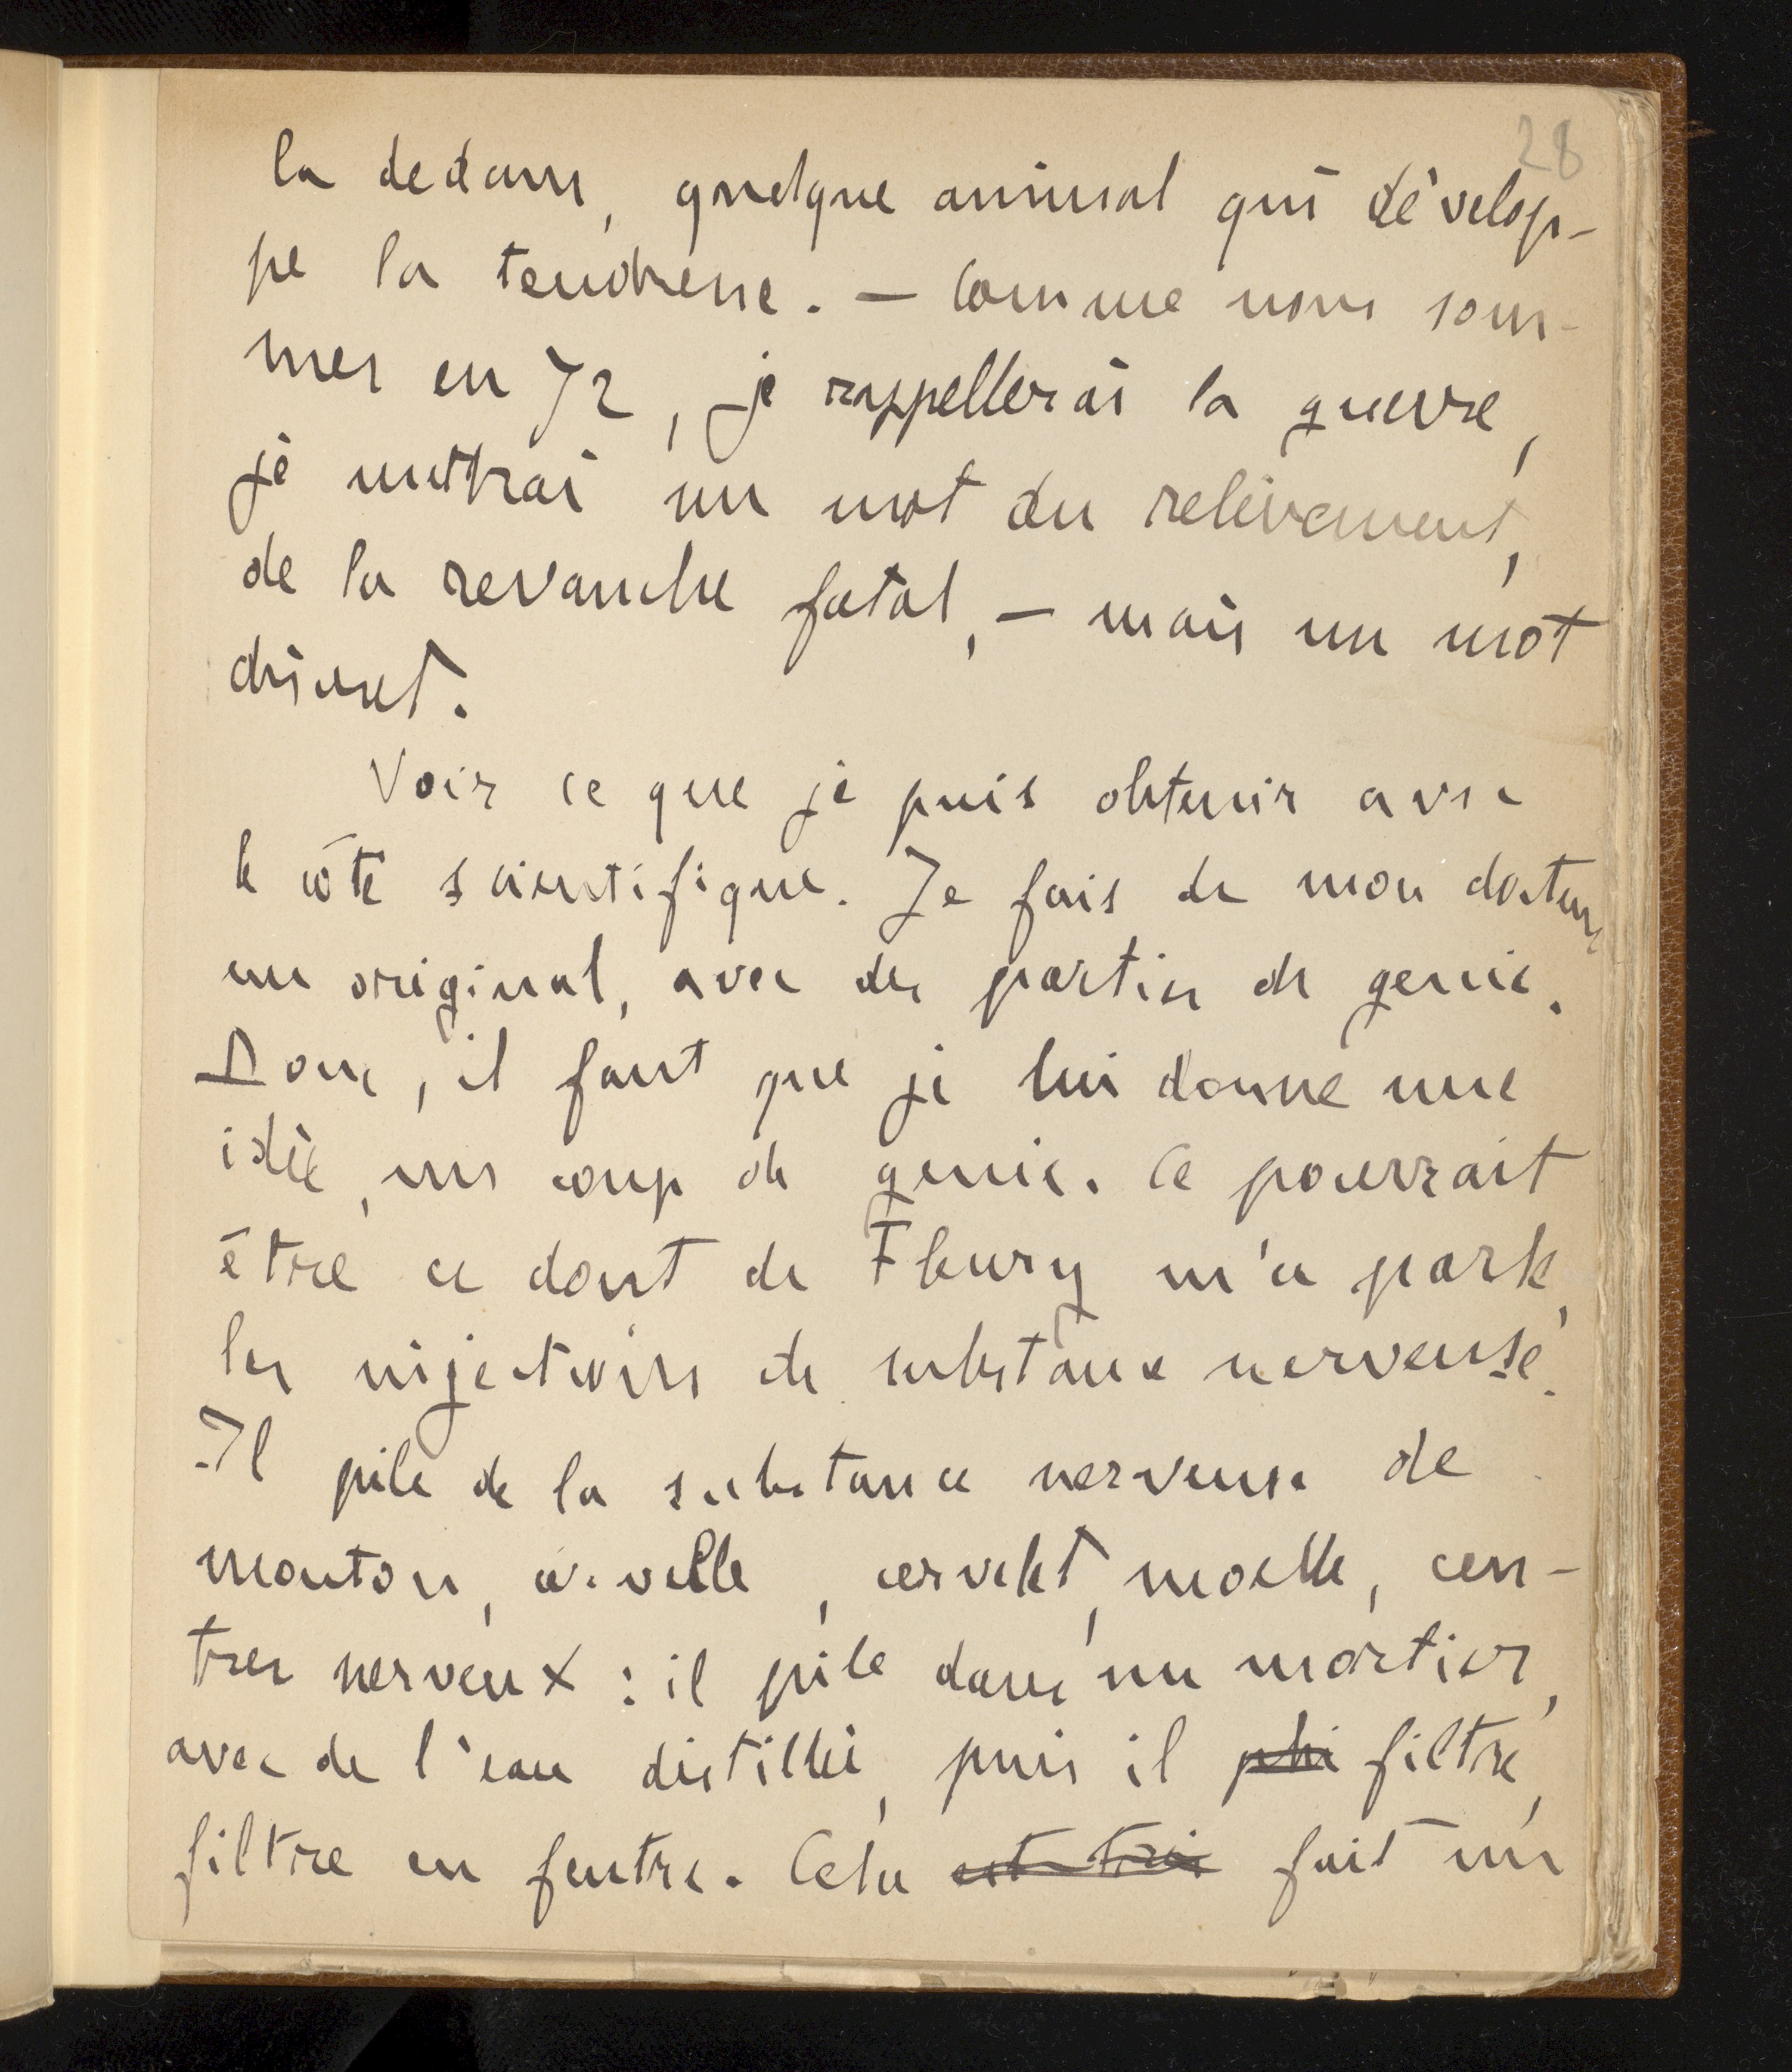 28
la dedans, quelque animal qui dévelop-
pe la tendresse. — Comme nous som-
mes en 72, je rappellerai la guerre,
je mettrai un mot du relèvement,
de la revanche fatal, — mais un mot
discret.
Voir ce que je puis obtenir avec
le côté scientifique. Je fais de mon docteur
un original, avec des parties de genie.
Donc, il faut que je lui donne une
idée, un coup de genie. Ce pourrait
être ce dont de Fleury m'a parlé,
les injections de substance nerveuse.
Il pile de la substance nerveuse de
mouton, cervelle, cervelet, moelle, cen-
tres nerveux : il pile dans un mortier,
avec de l'eau distillée, puis il phi filtre,
filtre en feutre. Cela est très fait un